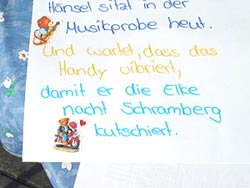 Hänsel sitzt in der
Musikprobe heut.
Und wartet, dass das
Handy vibriert,
damit er die Elke
nacht Schramberg
kutschiert.